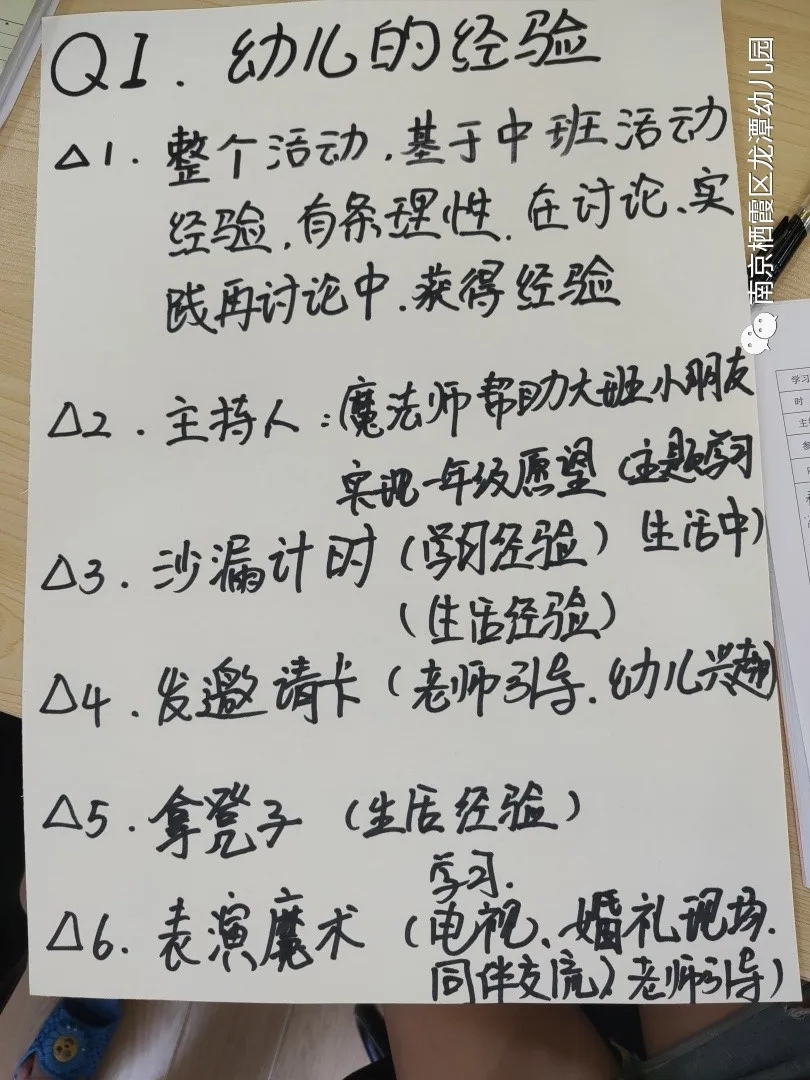 Q1. 幼儿的经验
△1. 整个活动,基于中班活动
经验,有条理性.在讨论、实
践再讨论中.获得经验
△2. 主持人:魔法师帮助大班小朋友
实现一年级愿望(主题学习
生活中)
△3. 沙漏计时(学习经验)
(生活经验)
△4. 发邀请卡(老师引导.幼儿兴趣)
△5. 拿凳子(生活经验)
学习.
△6. 表演魔术(电视、婚礼现场.
同伴交流)老师引导)
南京栖霞区龙潭幼儿园
学习
时
主